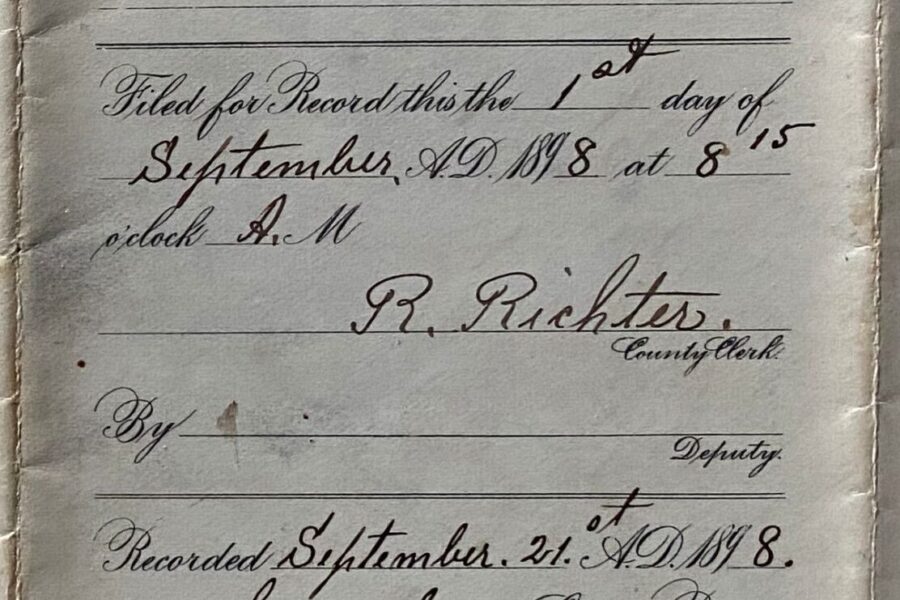 Filed for Record this the 1st day of
September, A.D. 1898 at 8 15
o'clock A. M
R. Richter.
County Clerk.
By
Deputy.
Recorded September. 21.st A.D. 1898.